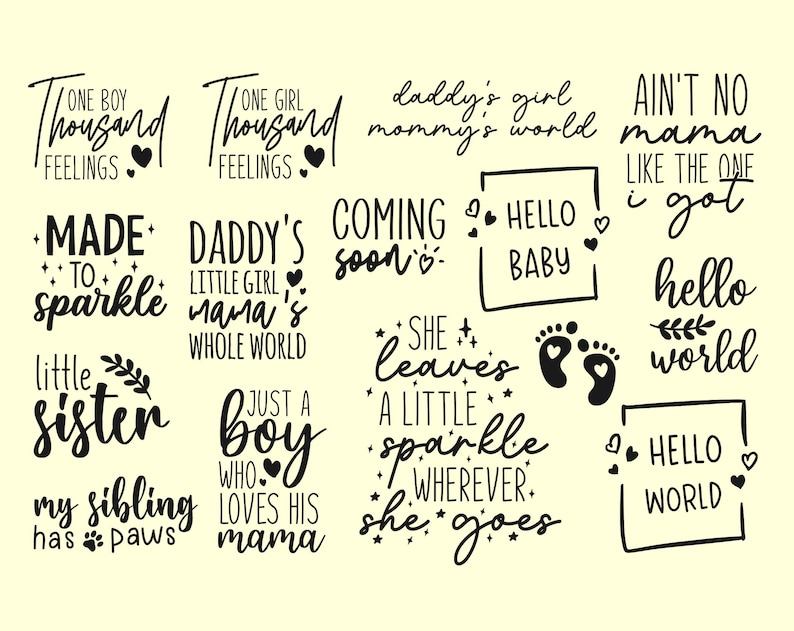 ONE BOY
Thousand
FEELINGS
ONE GIRL
Thousand
FEELINGS
daddy's girl
mommy's world
AIN'T NO
mama
LIKE THE ONE
i got
MADE
TO
sparkle
DADDY'S
LITTLE GIRL
mama's
WHOLE WORLD
COMING
soon
HELLO
BABY
hello
world
little
sister
JUST A
boy
WHO
LOVES HIS
mama
SHE
leaves
A LITTLE
sparkle
WHEREVER
she goes
HELLO
WORLD
my sibling
has paws